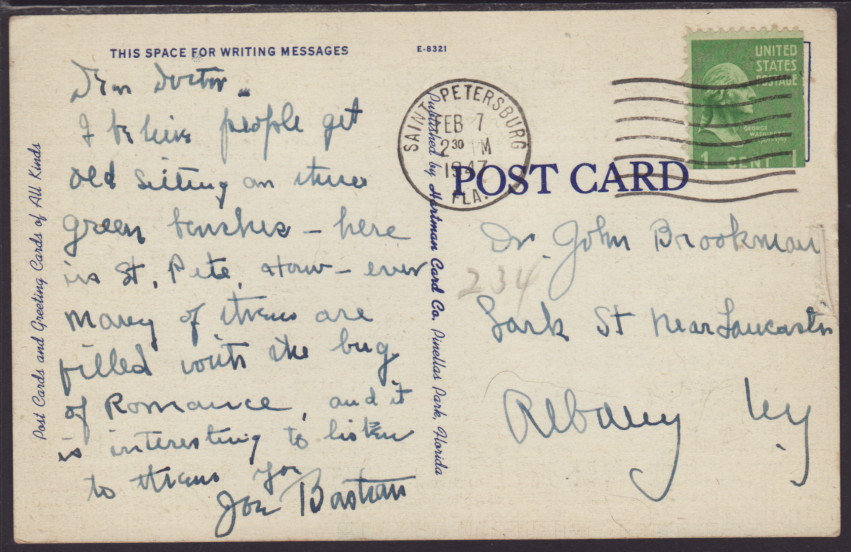 THIS SPACE FOR WRITING MESSAGES
E-8321
Dear Doctor
I believe people get
old sitting on these
green benches – here
in St. Pete. – even
many of them are
filled with the bug
of Romance, and it
is interesting to listen
to them you
Joe Bastian
Post Cards and Greeting Cards of All Kinds
Published by Hartman Card Co., Pinellas Park, Florida
SAINT PETERSBURG
FEB 7
2 30 PM
1947
FLA.
UNITED
STATES
POSTAGE
GEORGE
WASHINGTON
1 CENT 1
POST CARD
Dr. John Brookman
234
Lark St near Lancaster
Albany NY